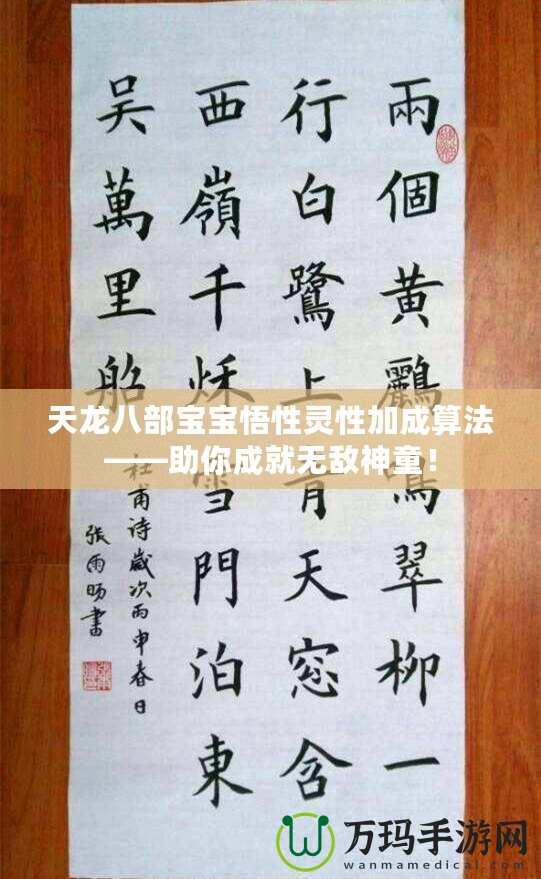 兩個黄鸝鳴翠柳一
行白鷺上青天窓含
西嶺千秋雪門泊東
吴萬里船
杜甫诗歲次丙申春日
張雨暘書
天龙八部宝宝悟性灵性加成算法
——助你成就无敌神童！
万玛手游网
www.wanmamedical.com